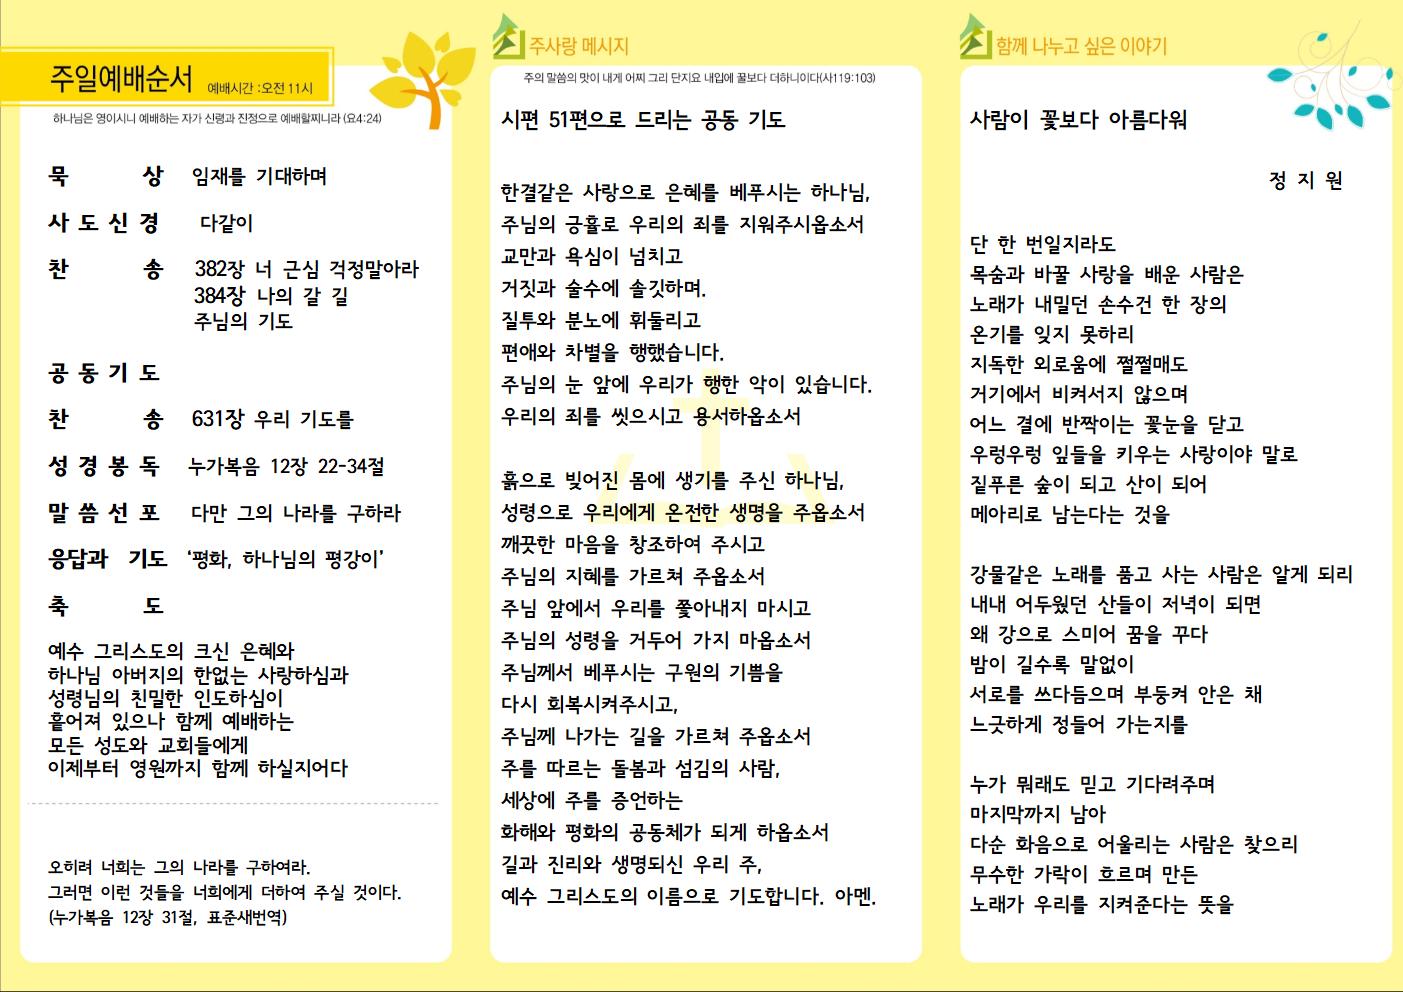 주일예배순서 예배시간 :오전 11시
하나님은 영이시니 예배하는 자가 신령과 진정으로 예배할찌니라 (요4:24)
묵 상 임재를 기대하며
사 도 신 경 다같이
찬 송 382장 너 근심 걱정말아라
384장 나의 갈 길
주님의 기도
공 동 기 도
찬 송 631장 우리 기도를
성 경 봉 독 누가복음 12장 22-34절
말 씀 선 포 다만 그의 나라를 구하라
응답과 기도 ‘평화, 하나님의 평강이’
축 도
예수 그리스도의 크신 은혜와
하나님 아버지의 한없는 사랑하심과
성령님의 친밀한 인도하심이
흩어져 있으나 함께 예배하는
모든 성도와 교회들에게
이제부터 영원까지 함께 하실지어다
오히려 너희는 그의 나라를 구하여라.
그러면 이런 것들을 너희에게 더하여 주실 것이다.
(누가복음 12장 31절, 표준새번역)
주사랑 메시지
주의 말씀의 맛이 내게 어찌 그리 단지요 내입에 꿀보다 더하니이다(사119:103)
시편 51편으로 드리는 공동 기도
한결같은 사랑으로 은혜를 베푸시는 하나님,
주님의 긍휼로 우리의 죄를 지워주시옵소서
교만과 욕심이 넘치고
거짓과 술수에 솔깃하며.
질투와 분노에 휘둘리고
편애와 차별을 행했습니다.
주님의 눈 앞에 우리가 행한 악이 있습니다.
우리의 죄를 씻으시고 용서하옵소서
흙으로 빚어진 몸에 생기를 주신 하나님,
성령으로 우리에게 온전한 생명을 주옵소서
깨끗한 마음을 창조하여 주시고
주님의 지혜를 가르쳐 주옵소서
주님 앞에서 우리를 쫓아내지 마시고
주님의 성령을 거두어 가지 마옵소서
주님께서 베푸시는 구원의 기쁨을
다시 회복시켜주시고,
주님께 나가는 길을 가르쳐 주옵소서
주를 따르는 돌봄과 섬김의 사람,
세상에 주를 증언하는
화해와 평화의 공동체가 되게 하옵소서
길과 진리와 생명되신 우리 주,
예수 그리스도의 이름으로 기도합니다. 아멘.
함께 나누고 싶은 이야기
사람이 꽃보다 아름다워
정 지 원
단 한 번일지라도
목숨과 바꿀 사랑을 배운 사람은
노래가 내밀던 손수건 한 장의
온기를 잊지 못하리
지독한 외로움에 쩔쩔매도
거기에서 비켜서지 않으며
어느 결에 반짝이는 꽃눈을 닫고
우렁우렁 잎들을 키우는 사랑이야 말로
짙푸른 숲이 되고 산이 되어
메아리로 남는다는 것을
강물같은 노래를 품고 사는 사람은 알게 되리
내내 어두웠던 산들이 저녁이 되면
왜 강으로 스미어 꿈을 꾸다
밤이 길수록 말없이
서로를 쓰다듬으며 부둥켜 안은 채
느긋하게 정들어 가는지를
누가 뭐래도 믿고 기다려주며
마지막까지 남아
다순 화음으로 어울리는 사람은 찾으리
무수한 가락이 흐르며 만든
노래가 우리를 지켜준다는 뜻을